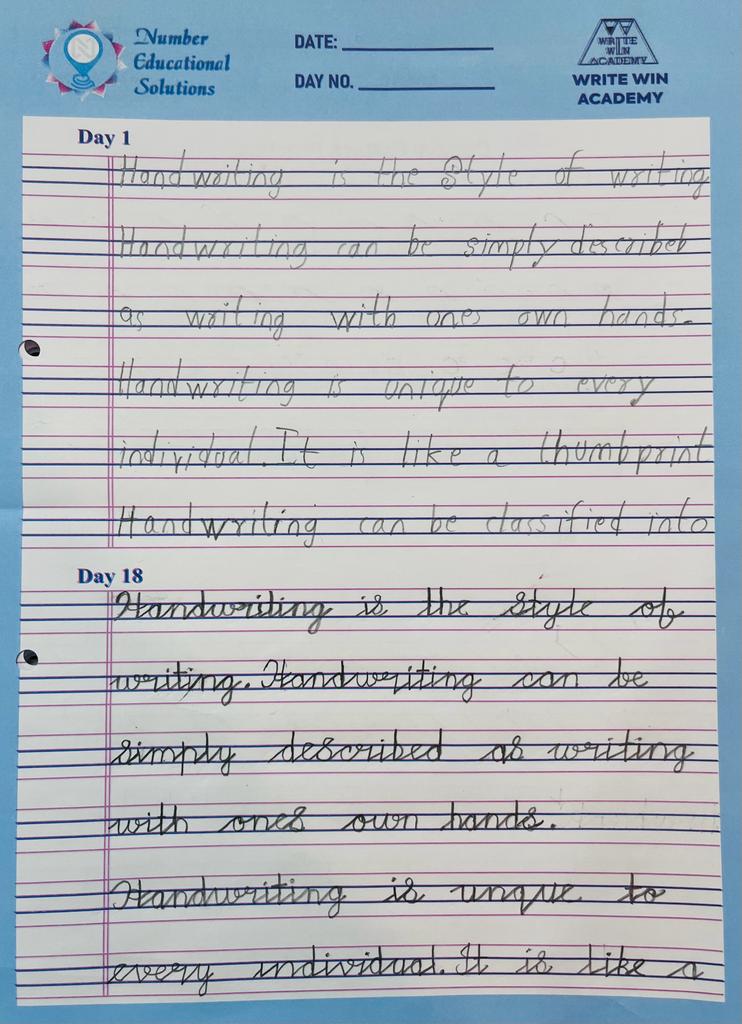 Number
Educational
Solutions
DATE:
DAY NO.
WRITE
WIN
ACADEMY
WRITE WIN
ACADEMY
Day 1
Handwriting is the Style of writing
Handwriting can be simply describeb
as writing with ones own hands.
Handwriting is unique to every
individual. It is like a thumbprint
Handwriting can be classified into
Day 18
Handwriting is the style of
writing. Handwriting can be
simply described as writing
with ones own hands.
Handwriting is unque to
every individual. It is like a